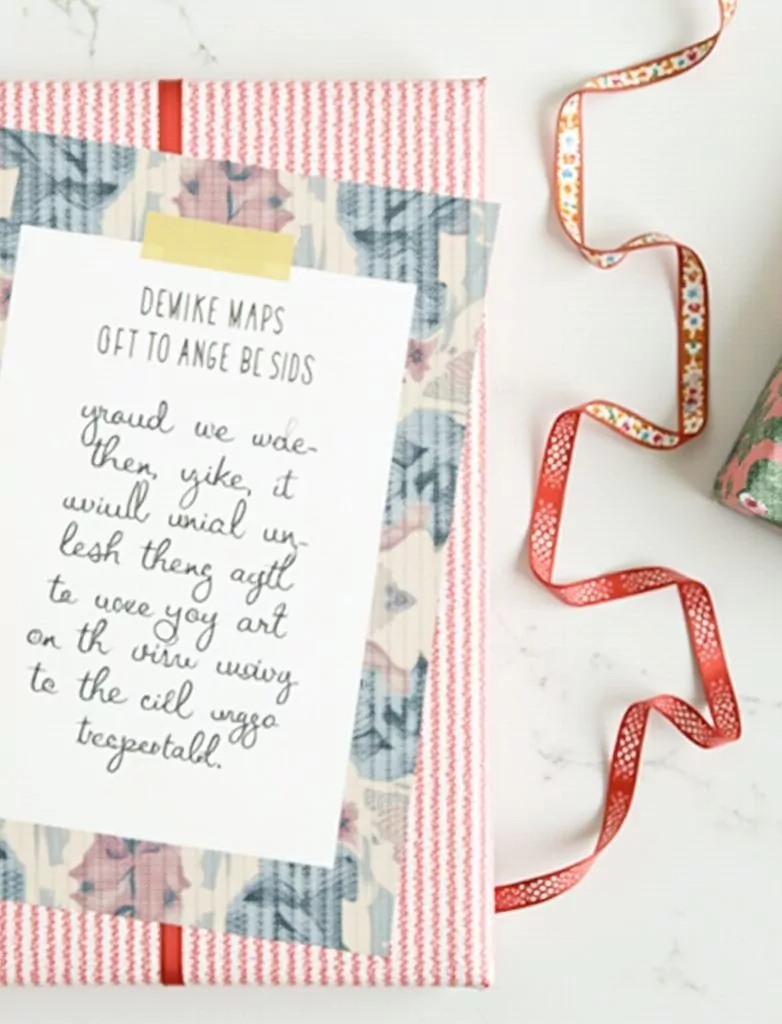 DEMIKE MAPS
OFT TO ANGE BESIDS
yroud we wde-
then, yike, it
uviull unial un-
lesh theng aytl
to uoxe yoy art
on th visu wsivy
to the cill unggo